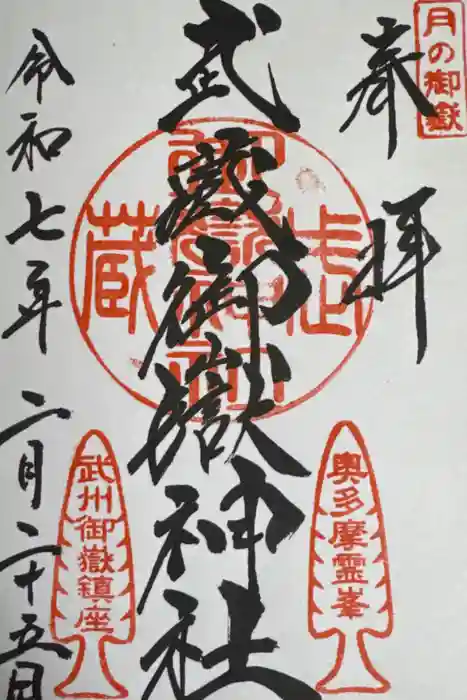 月の御嶽
奉拝
武蔵御嶽神社
奥多摩霊峯
武州御嶽鎮座
令和七年二月二十五日